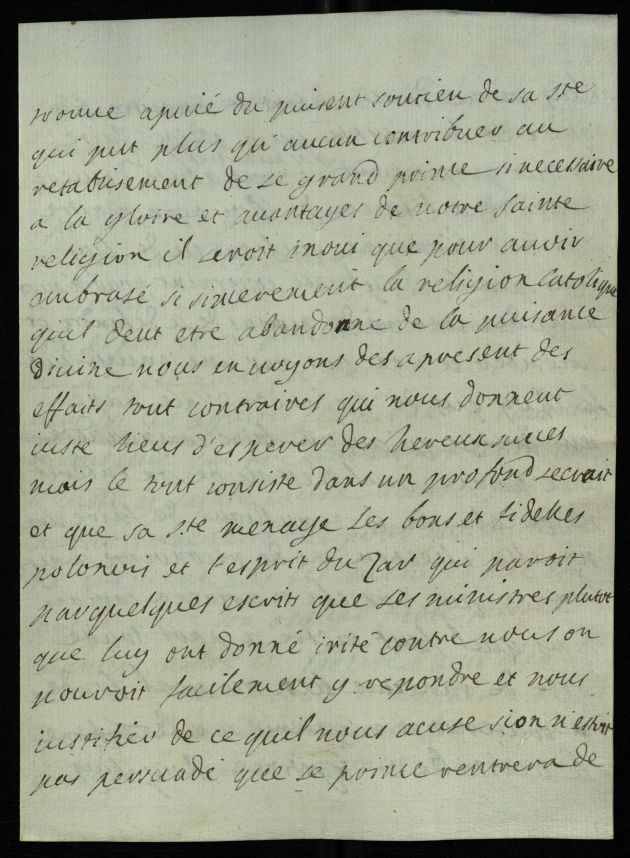 trouve apuié du puisent soutien de sa ste
qui put plus qu'aucun contribuer au
retablisement de se grand prince si necessaire
a la gloire et auantages de notre sainte
religion il seroit inoui que pour auoir
ambrasé si sincerement la religion Catolique
quil deut etre abandonne de la puisance
Diuine nous en uoyons des apresent des
effaits tout contraires qui nous donnent
iuste lieus d'esperer des hereux succes
mais le tout consiste dans un profond secrait
et que sa ste menage ses bons et fidelles
polonois et l'esprit du Zar qui paroit
par quelques escrits que ses ministres plutot
que luy ont donné irité contre nous on
pouroit facilement y repondre et nous
iustifier de ce quil nous acuse sion n'estoit
pas persuadé que se prince rentrera de